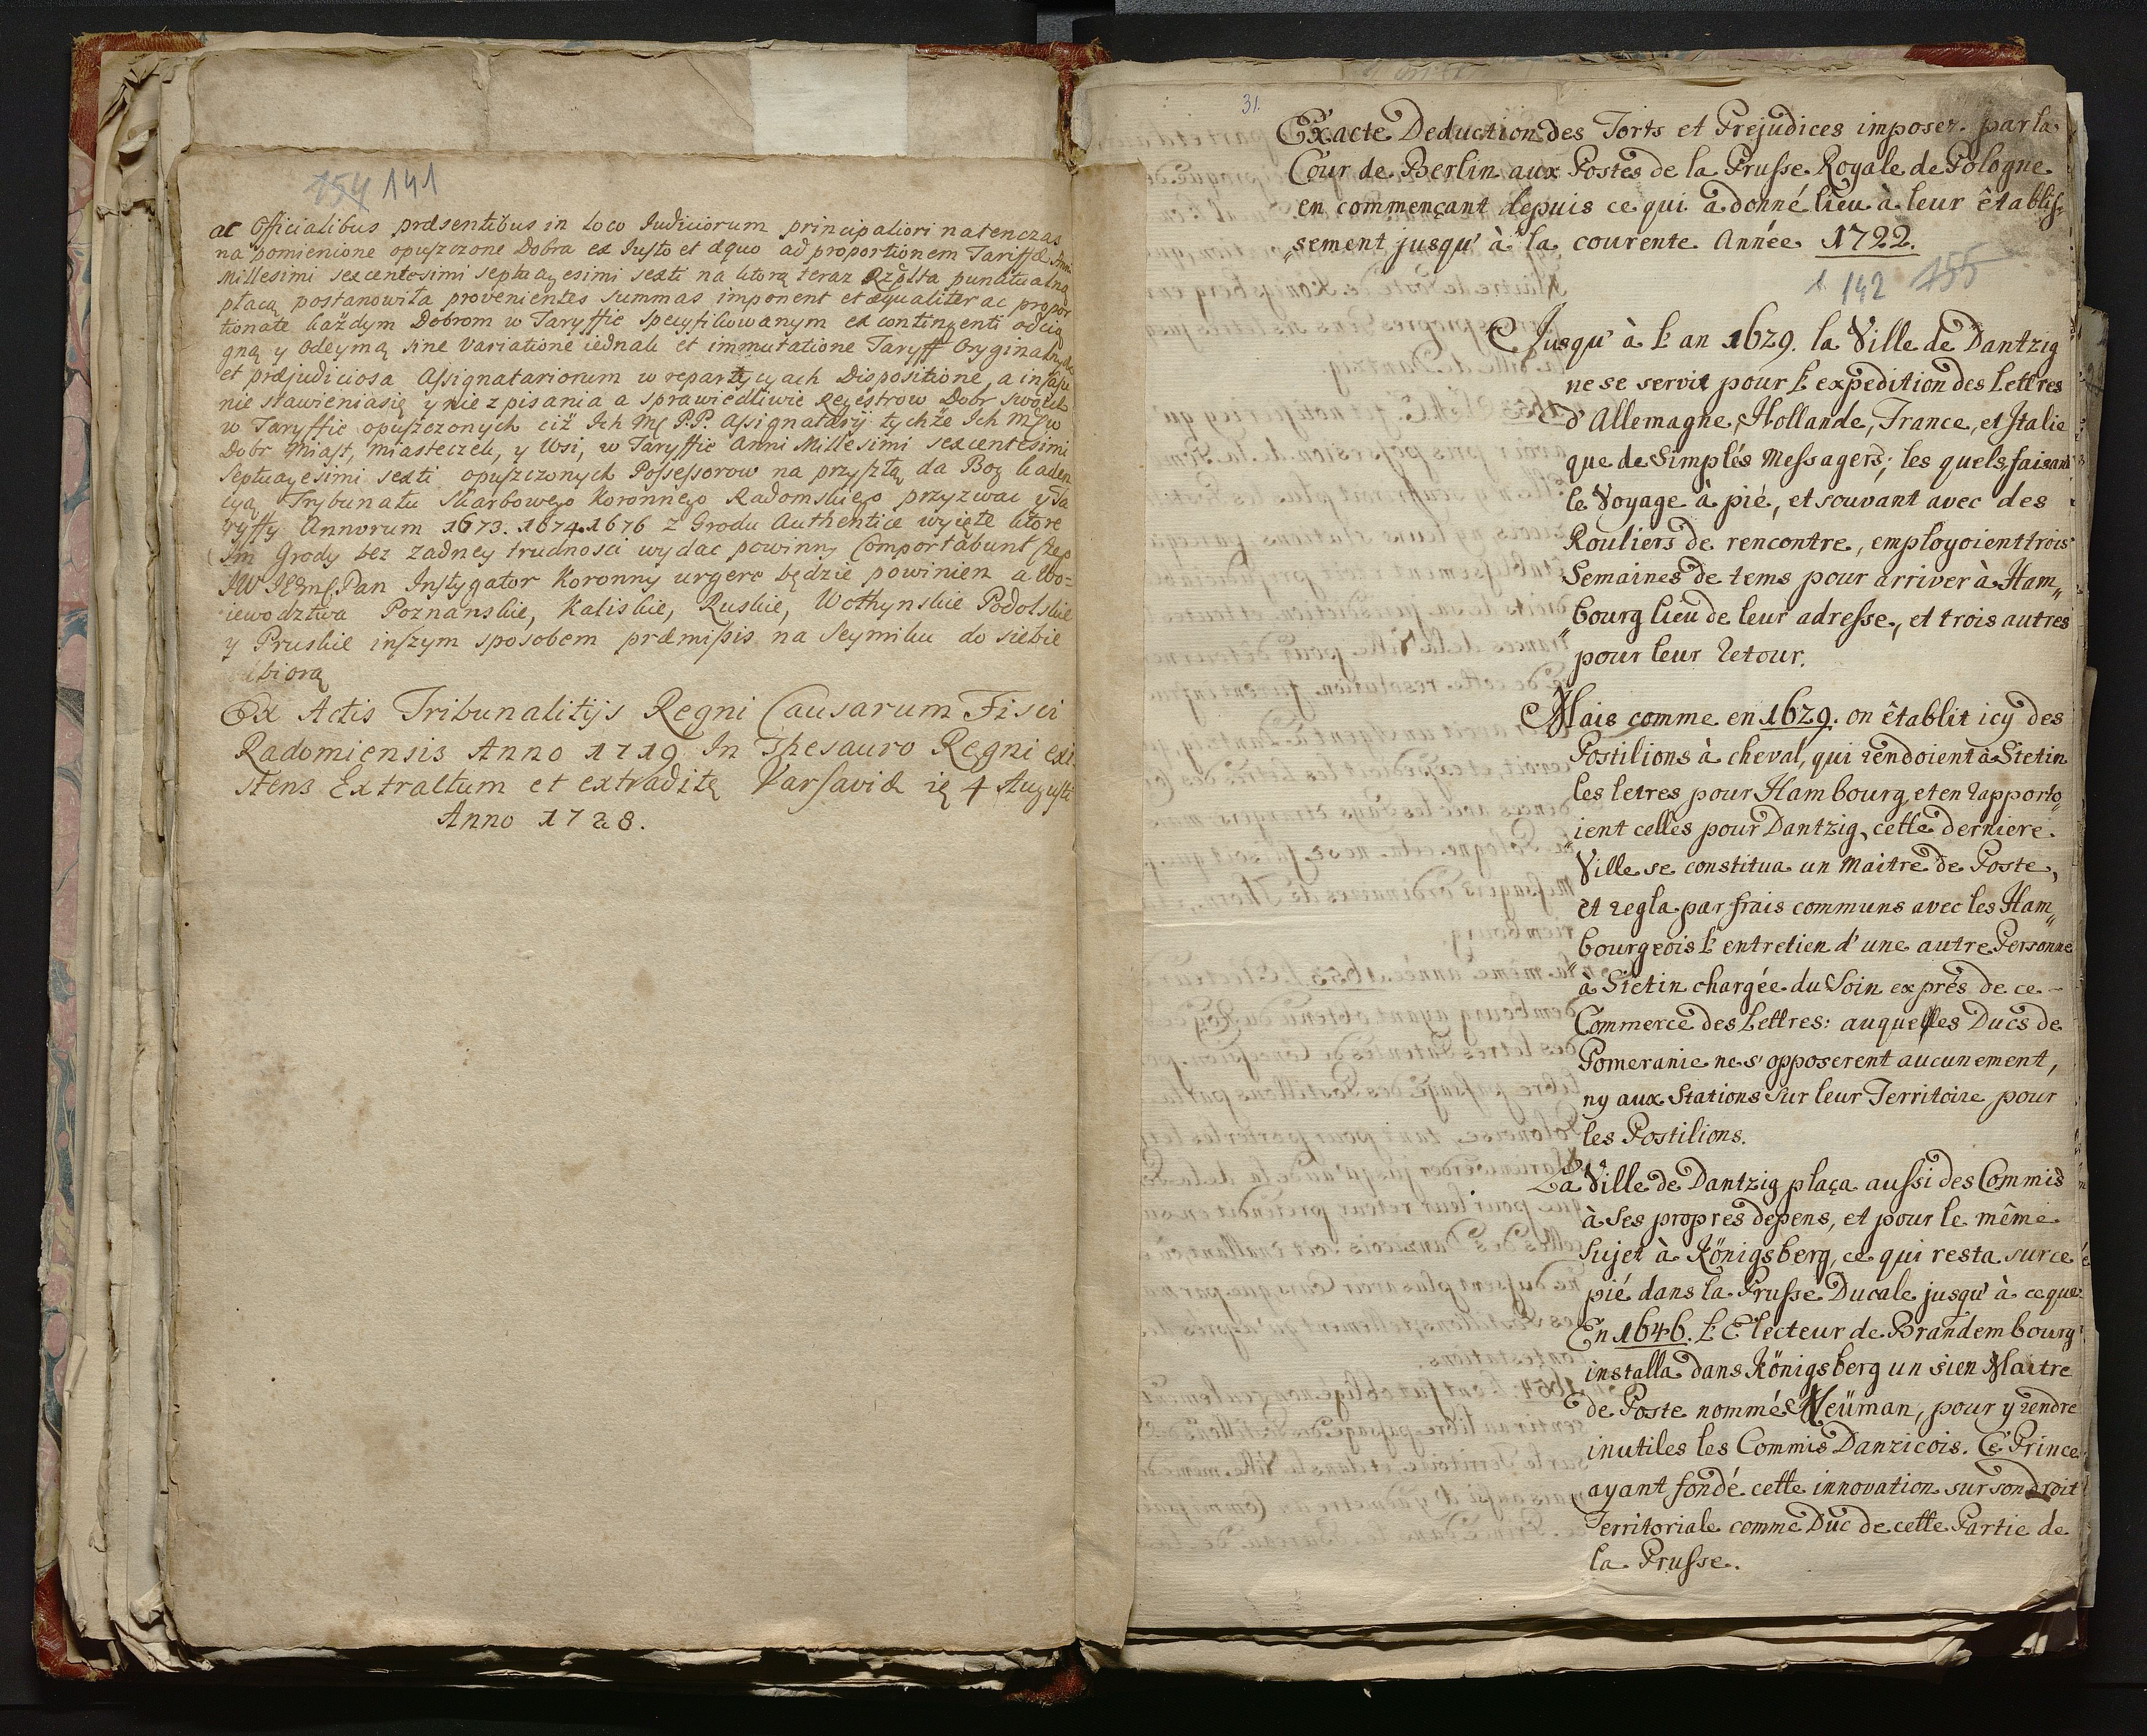 154 141
ac Officialibus præsentibus in loco Iudiciorum principaliori natenczas
na pomienione opuszczone Dobra ex Iusto et æquo ad proportionem Tariffæ Anni
Millesimi sexcentesimi septuagesimi sexti na ktorą teraz Rzplta punctualną
płacą postanowiła provenientes summas imponent et æqualiter ac propor
tionate każdym Dobrom w Taryffie specyfikowanym ex contingenti odcią
gną y odeymą sine variatione iednak et immutatione Taryff Oryginalnych
et præjudiciosa Assignatariorum w repartycyach Dispositione, a in casu
nie stawieniasię y nie zpisania a sprawiedliwie Regestrow Dobr swoich
w Taryffie opuszczonych ciż Ich Mć P.P. Assignataryi tychże Ich Mćiw
Dobr Miast, Miasteczek, y Wsi, w Taryffie Anni Millesimi sexcentesimi
Septuagesimi sexti opuszczonych Possessorow na przyszłą da Bog kaden
cyą Trybunału Skarbowego Koronnego Radomskiego przyzwac y Ta
ryffy Annorum 1673. 1674. 1676 z Grodu Authentice wyięte ktore
Im Grody bez zadney trudnosci wydac powinny Comportabunt
JW JEmć Pan Instygator Koronny urgere będzie powinien a Wo=
iewodztwa Poznanskie, Kaliskie, Ruskie, Wołhynskie Podolskie
y Pruskie inszym sposobem præmissis na Seymiku do siebie
biorą
Ex Actis Tribunalitijs Regni Causarum Fisci
Radomiensis Anno 1719 In Thesauro Regni exi
stens Extractum et extraditę Varsaviæ ię 4 Augusti
Anno 1728.
31.
Exacte Deduction des Torts et Prejudices imposez par la
Cour de Berlin aux Postes de la Prusse Royale de Pologne
en commençant depuis ce qui a donné lieu à leur établis„
„sement jusqu' à la courente Année 1722.
1 142 155
Jusqu' à l' an 1629. la Ville de Dantzig
ne se servit pour l' expedition des Lettres
d' Allemagne, Hollande, France, et Italie
que de Simplés Messagers; les quels, faisant
le Voyage à pié, et souvant avec des
Rouliers de rencontre, employoient trois
Semaines de tems pour arriver à Ham„
„bourg lieu de leur adresse, et trois autres
pour leur retour.
Mais comme en 1629. on établit icy des
Postilions à cheval, qui rendoient à Stetin
les letres pour Hambourg, et en rapporto„
„ient celles pour Dantzig, cette derniere
Ville se constitua un Maitre de Poste,
et regla par frais communs avec les Ham„
„bourgeois l' entretien d' une autre Personne
à Stetin chargée du Soin exprés de ce-
Commerce des Lettres: auquel les Ducs de
Pomeranie ne s' opposerent aucunement,
ny aux Stations sur leur Territoire pour
les Postilions.
La Ville de Dantzig plaça aussi des Commis
à Ses propres depens, et pour le même
Sujet à Königsberg, ce qui resta sur ce
pié dans la Prusse Ducale jusqu' à ce que
En 1646. l' Electeur de Brandembourg
installa dans Königsberg un sien Maitre
de Poste nommé Neüman, pour y rendre
inutiles les Commis Danzicois. Ce Prince
ayant fondé cette innovation sur son droit
Territoriale comme Duc de cette Partie de
la Prusse.